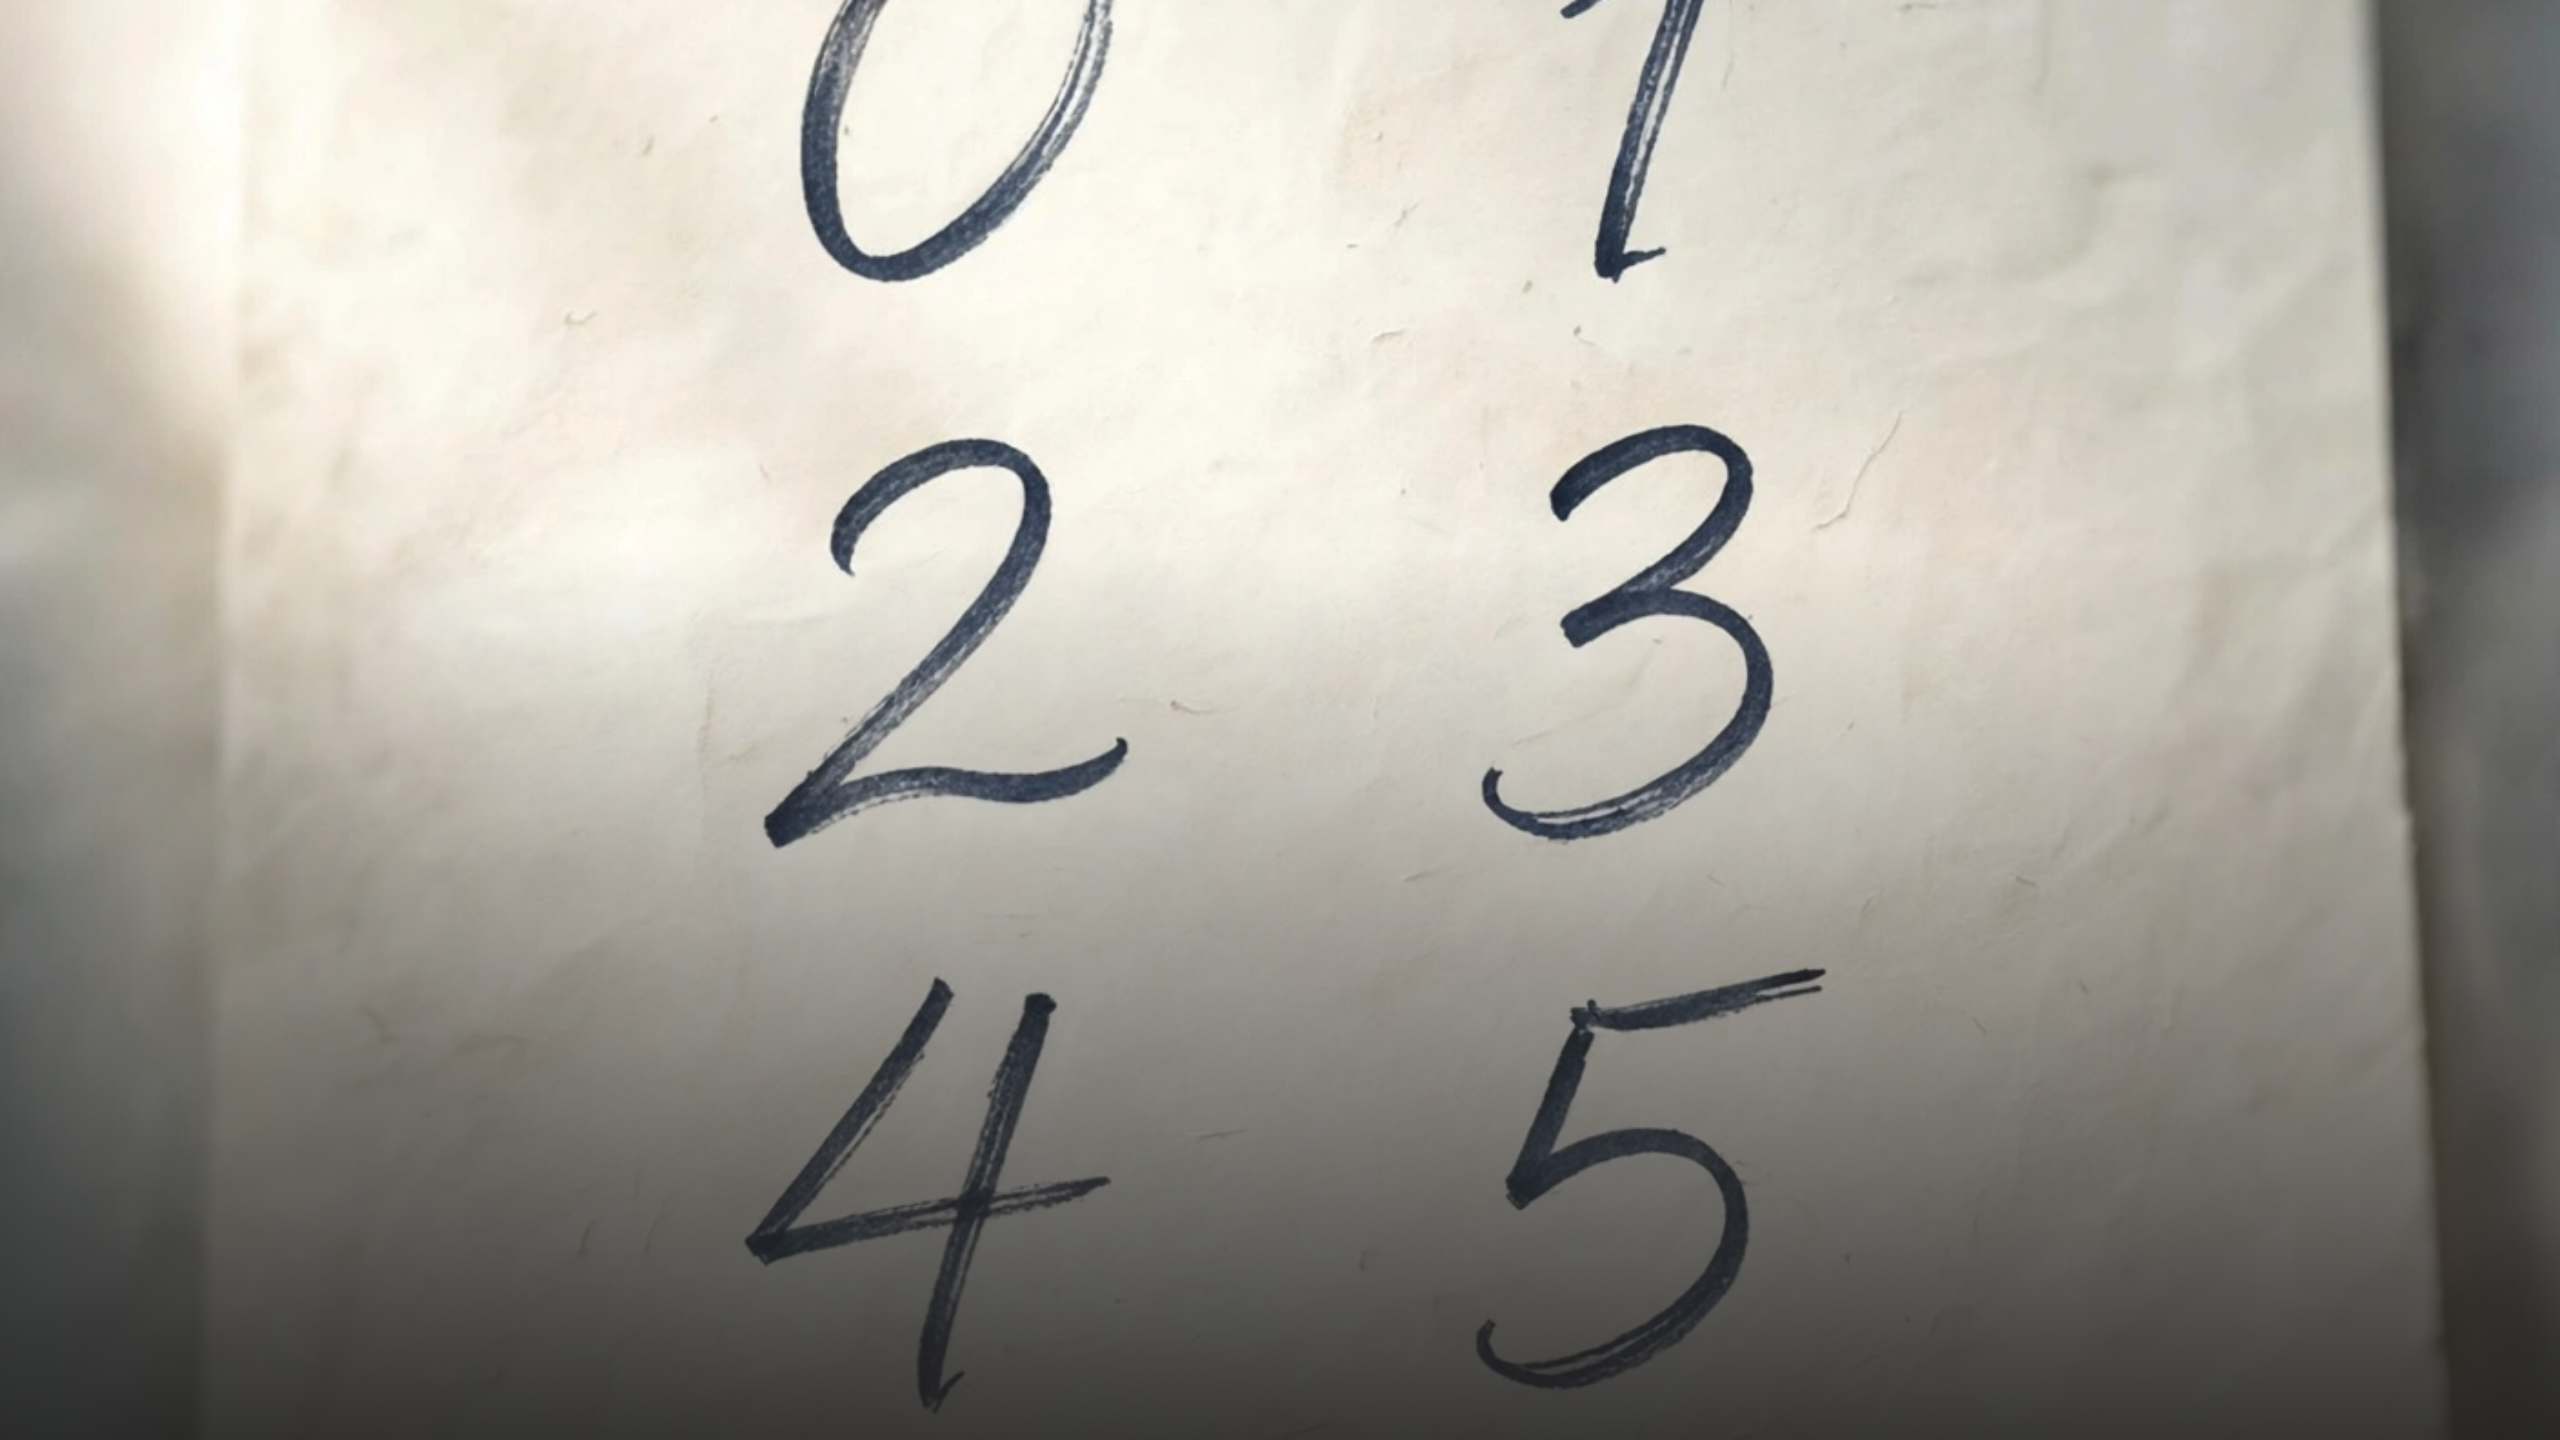 0 1
2 3
4 5